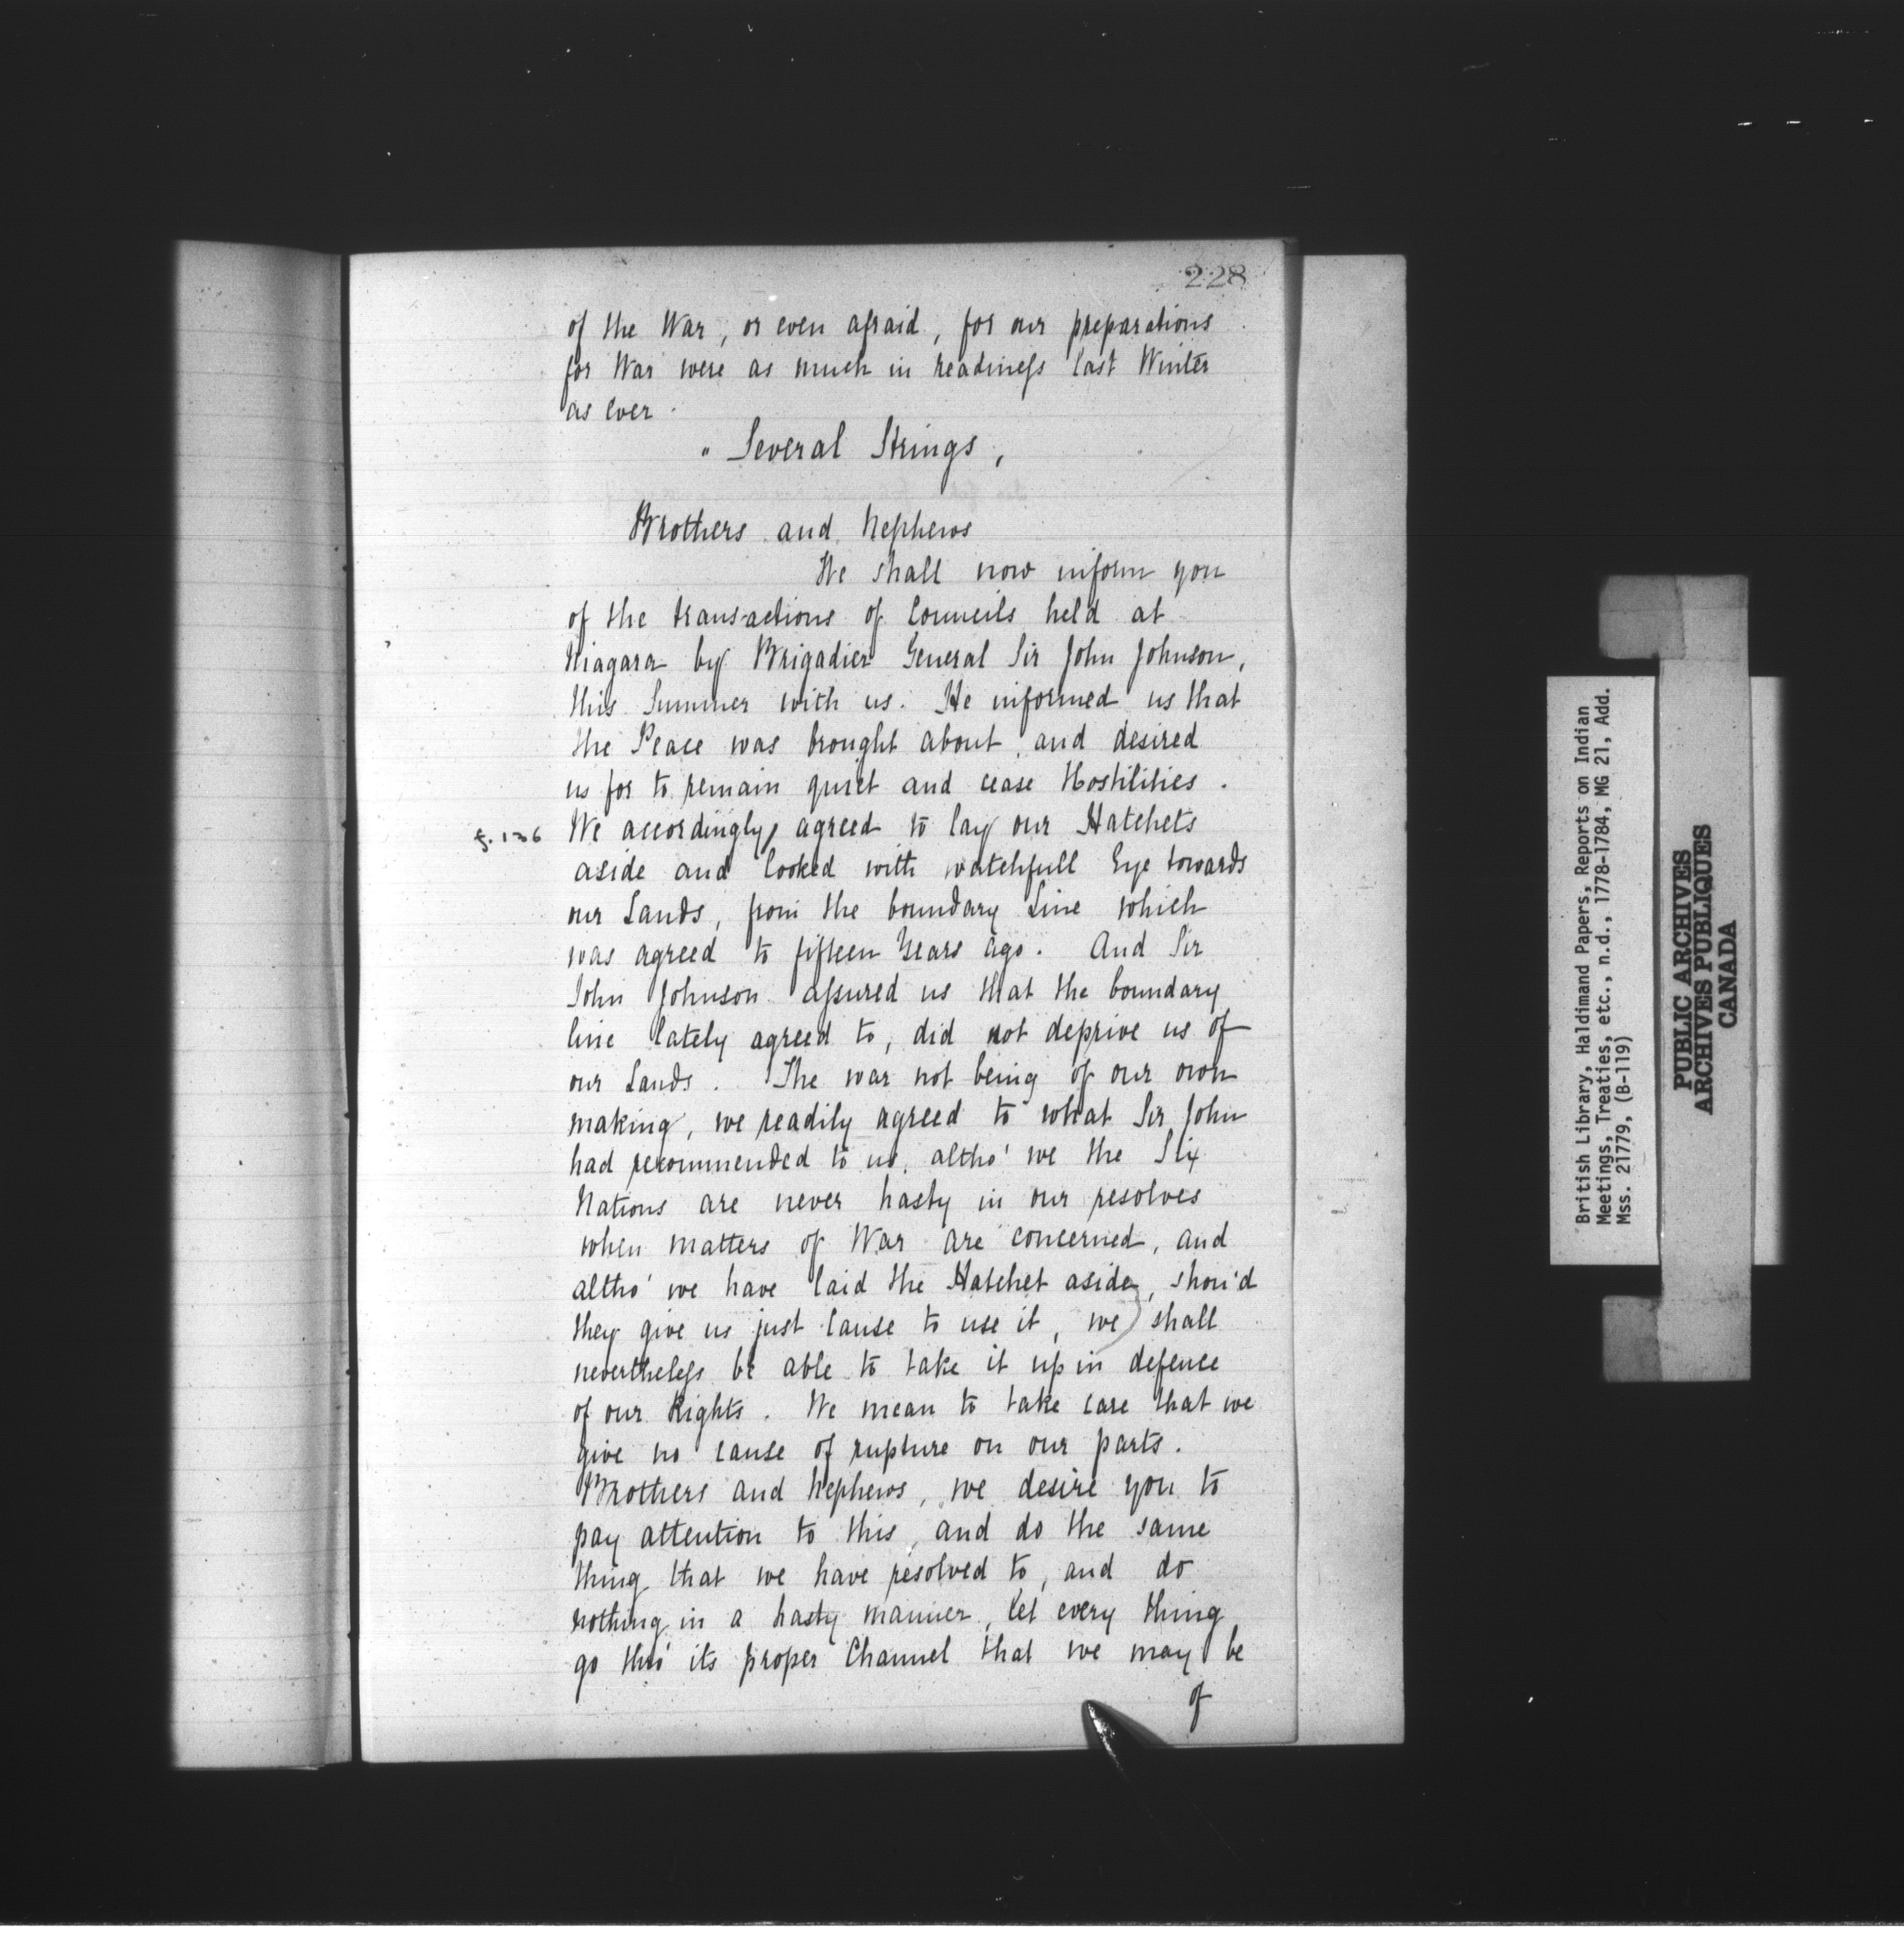 228
of the War, or even afraid, for our preparations
for War were as much in readiness last Winter
as ever.
" Several Strings,
Brothers and Nephews
We shall now inform you
of the transactions of Councils held at
Niagara by Brigadier General Sir John Johnson,
this Summer with us. He informed us that
the Peace was brought about, and desired
us for to remain quiet and cease Hostilities.
f. 136
We accordingly agreed to lay our Hatchets
aside and looked with watchfull Eye towards
our Lands, from the boundary Line which
was agreed to fifteen Years ago. And Sir
John Johnson assured us that the boundary
line lately agreed to, did not deprive us of
our Lands. The war not being of our own
making, we readily agreed to what Sir John
had recommended to us, altho' we the Six
Nations are never hasty in our resolves
when matters of War are concerned, and
altho' we have laid the Hatchet aside, shou'd
they give us just Cause to use it, we shall
nevertheless be able to take it up in defence
of our Rights. We mean to take care that we
give no cause of rupture on our parts.
Brothers and Nephews, we desire you to
pay attention to this, and do the same
thing that we have resolved to, and do
nothing in a hasty manner, let every thing
go thro' its proper Channel that we may be
of
British Library, Haldimand Papers, Reports on Indian
Meetings, Treaties, etc., n.d., 1778-1784, MG 21, Add.
Mss. 21779, (B-119)
PUBLIC ARCHIVES
ARCHIVES PUBLIQUES
CANADA